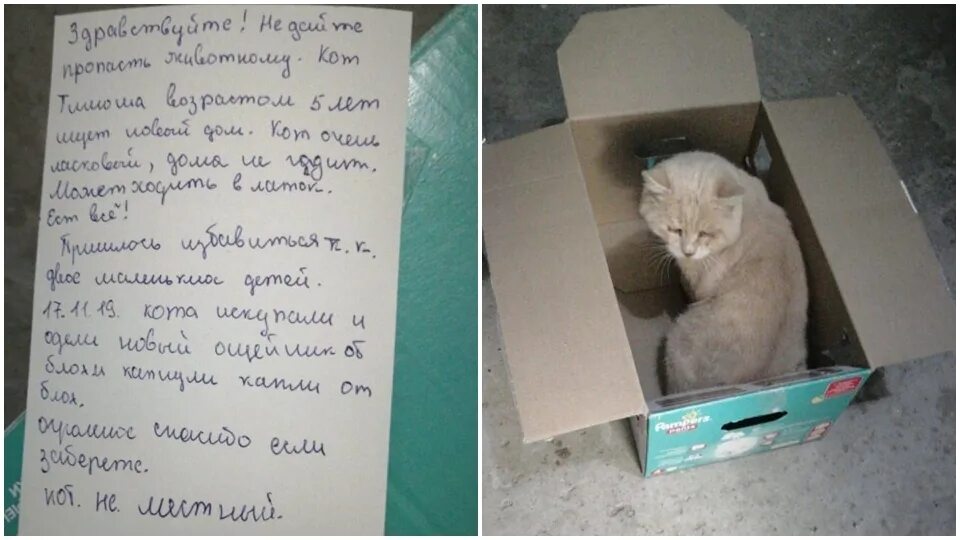 Здравствуйте! Не дайте
пропасть животному. Кот
Тимоша возрастом 5 лет
ищет новый дом. Кот очень
ласковый, дома не гадит.
Может ходить в латок.
Ест всё!
Пришлось избавиться т.к.
двое маленьких детей.
17.11.19. кота искупали и
одели новый ощейник от
блохи капнули капли от
блох.
огромное спасибо если
заберете.
кот. не. местный.
Pampers
PANTS